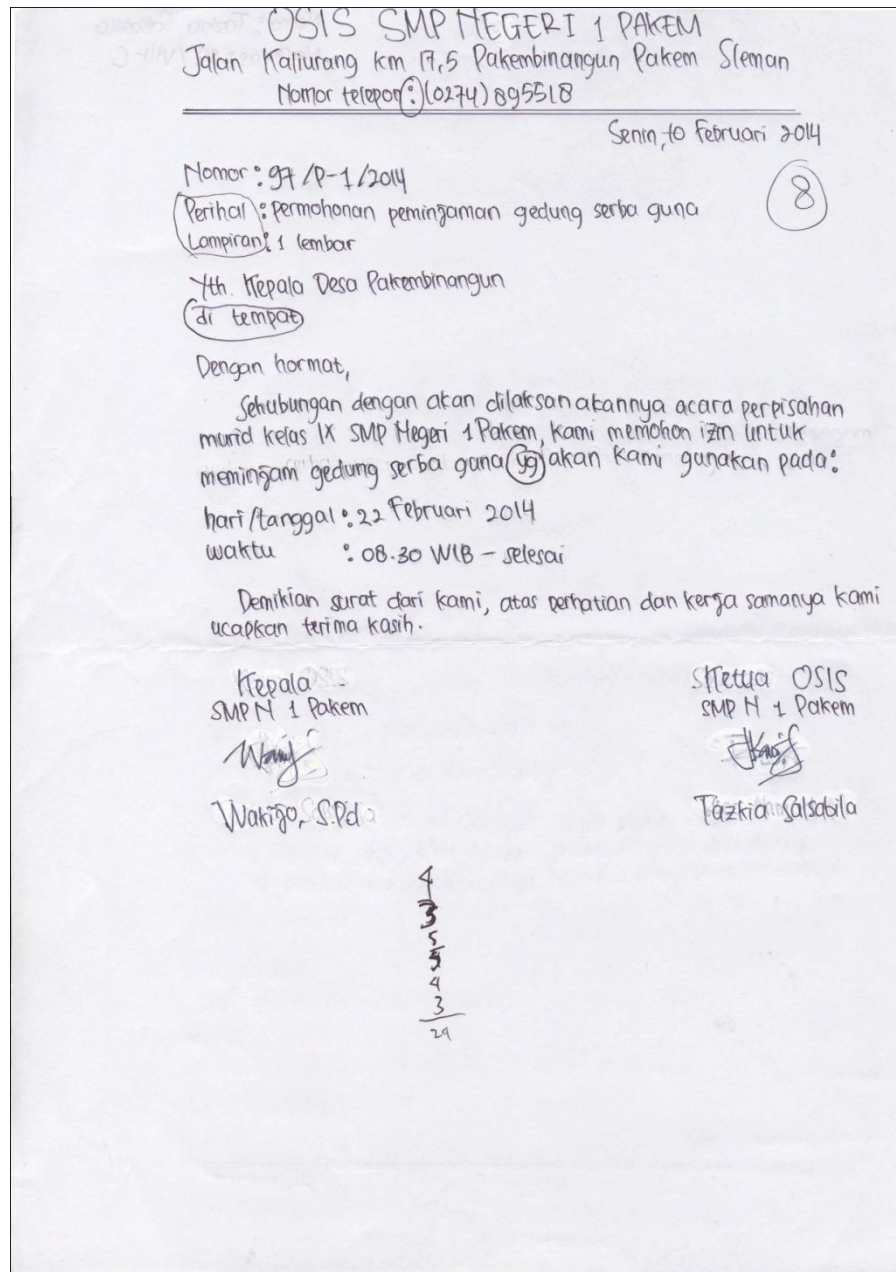 OSIS SMP NEGERI 1 PAKEM
Jalan Kaliurang km 17,5 Pakembinangun Pakem Sleman
Nomor telepon : (0274) 895518
Senin, 10 Februari 2014
Nomor : 97 /P-1/2014
8
Perihal : permohonan peminjaman gedung serba guna
Lampiran : 1 lembar
Yth. Kepala Desa Pakembinangun
di tempat
Dengan hormat,
Sehubungan dengan akan dilaksanakannya acara perpisahan
murid kelas IX SMP Negeri 1 Pakem, kami memohon izin untuk
meminjam gedung serba guna yg akan kami gunakan pada :
hari/tanggal : 22 Februari 2014
waktu : 08.30 WIB - selesai
Demikian surat dari kami, atas perhatian dan kerja samanya kami
ucapkan terima kasih.
Kepala Ketua OSIS
SMP N 1 Pakem SMP N 1 Pakem
Wakijo, S.Pd Tazkia Salsabila
4
3
5
5
4
3
24